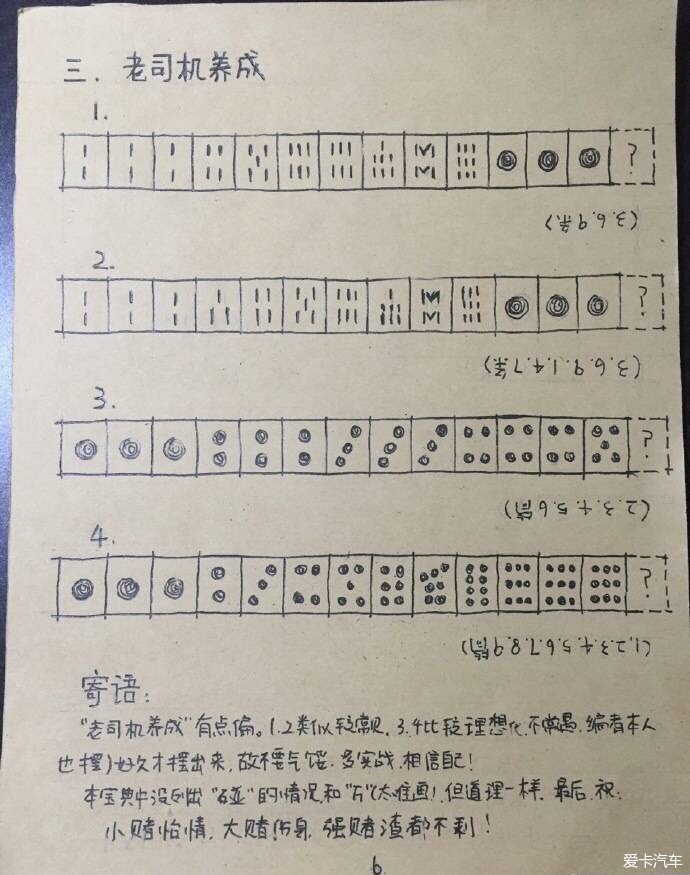 三. 老司机养成
1.
?
(3.6.9.条)
2.
?
(3.6.9.1.4.7条)
3.
?
(2.3.4.5.6筒)
4.
?
(1.2.3.4.5.6.7.8.9筒)
寄语:
"老司机养成"有点偏。1.2类似较常见,3.4比较理想化,不常遇.编者本人
也摆了好久才摆出来,故不要气馁.多实战,相信自己!
本宝典中没列出"碰"的情况和"万"(太难画),但道理一样.最后,祝:
小赌怡情,大赌伤身,强赌渣都不剩!
6.
爱卡汽车